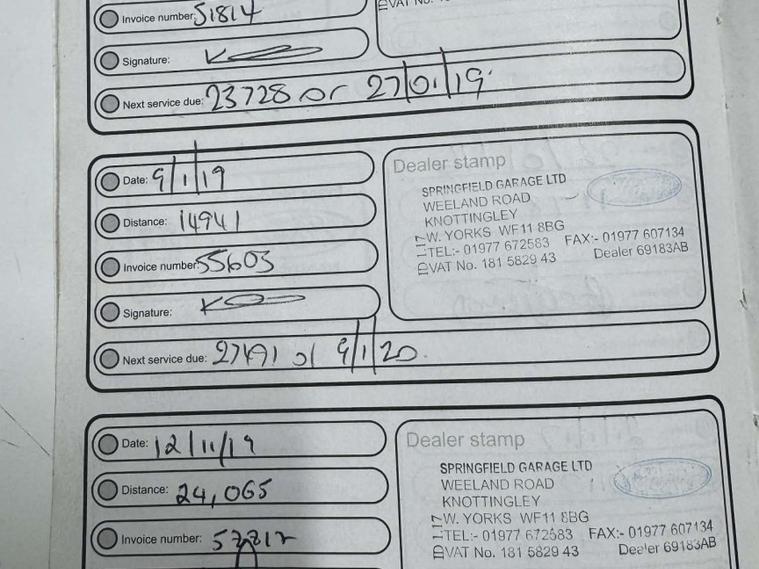 Invoice number: 51814
VAT No.
Signature:
Next service due: 23728 or 27/01/19
Date: 9/1/19
Distance: 14941
Invoice number: 55603
Signature:
Next service due: 27491 or 9/1/20.
Dealer stamp
SPRINGFIELD GARAGE LTD
WEELAND ROAD
KNOTTINGLEY
W. YORKS WF11 8BG
TEL:- 01977 672583 FAX:- 01977 607134
VAT No. 181 5829 43 Dealer 69183AB
Date: 12/11/19
Distance: 24,065
Invoice number:
Dealer stamp
SPRINGFIELD GARAGE LTD
WEELAND ROAD
KNOTTINGLEY
W. YORKS WF11 8BG
TEL:- 01977 672583 FAX:- 01977 607134
VAT No. 181 5829 43 Dealer 69183AB